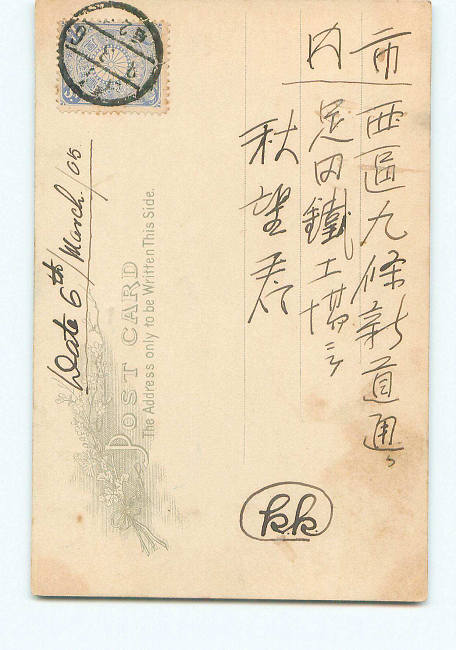 市内
西區九條新道通り
足田鐵工場ニテ
秋望君
k.k.
Date 6th/March./05
POST CARD
The Address only to be Written This Side.